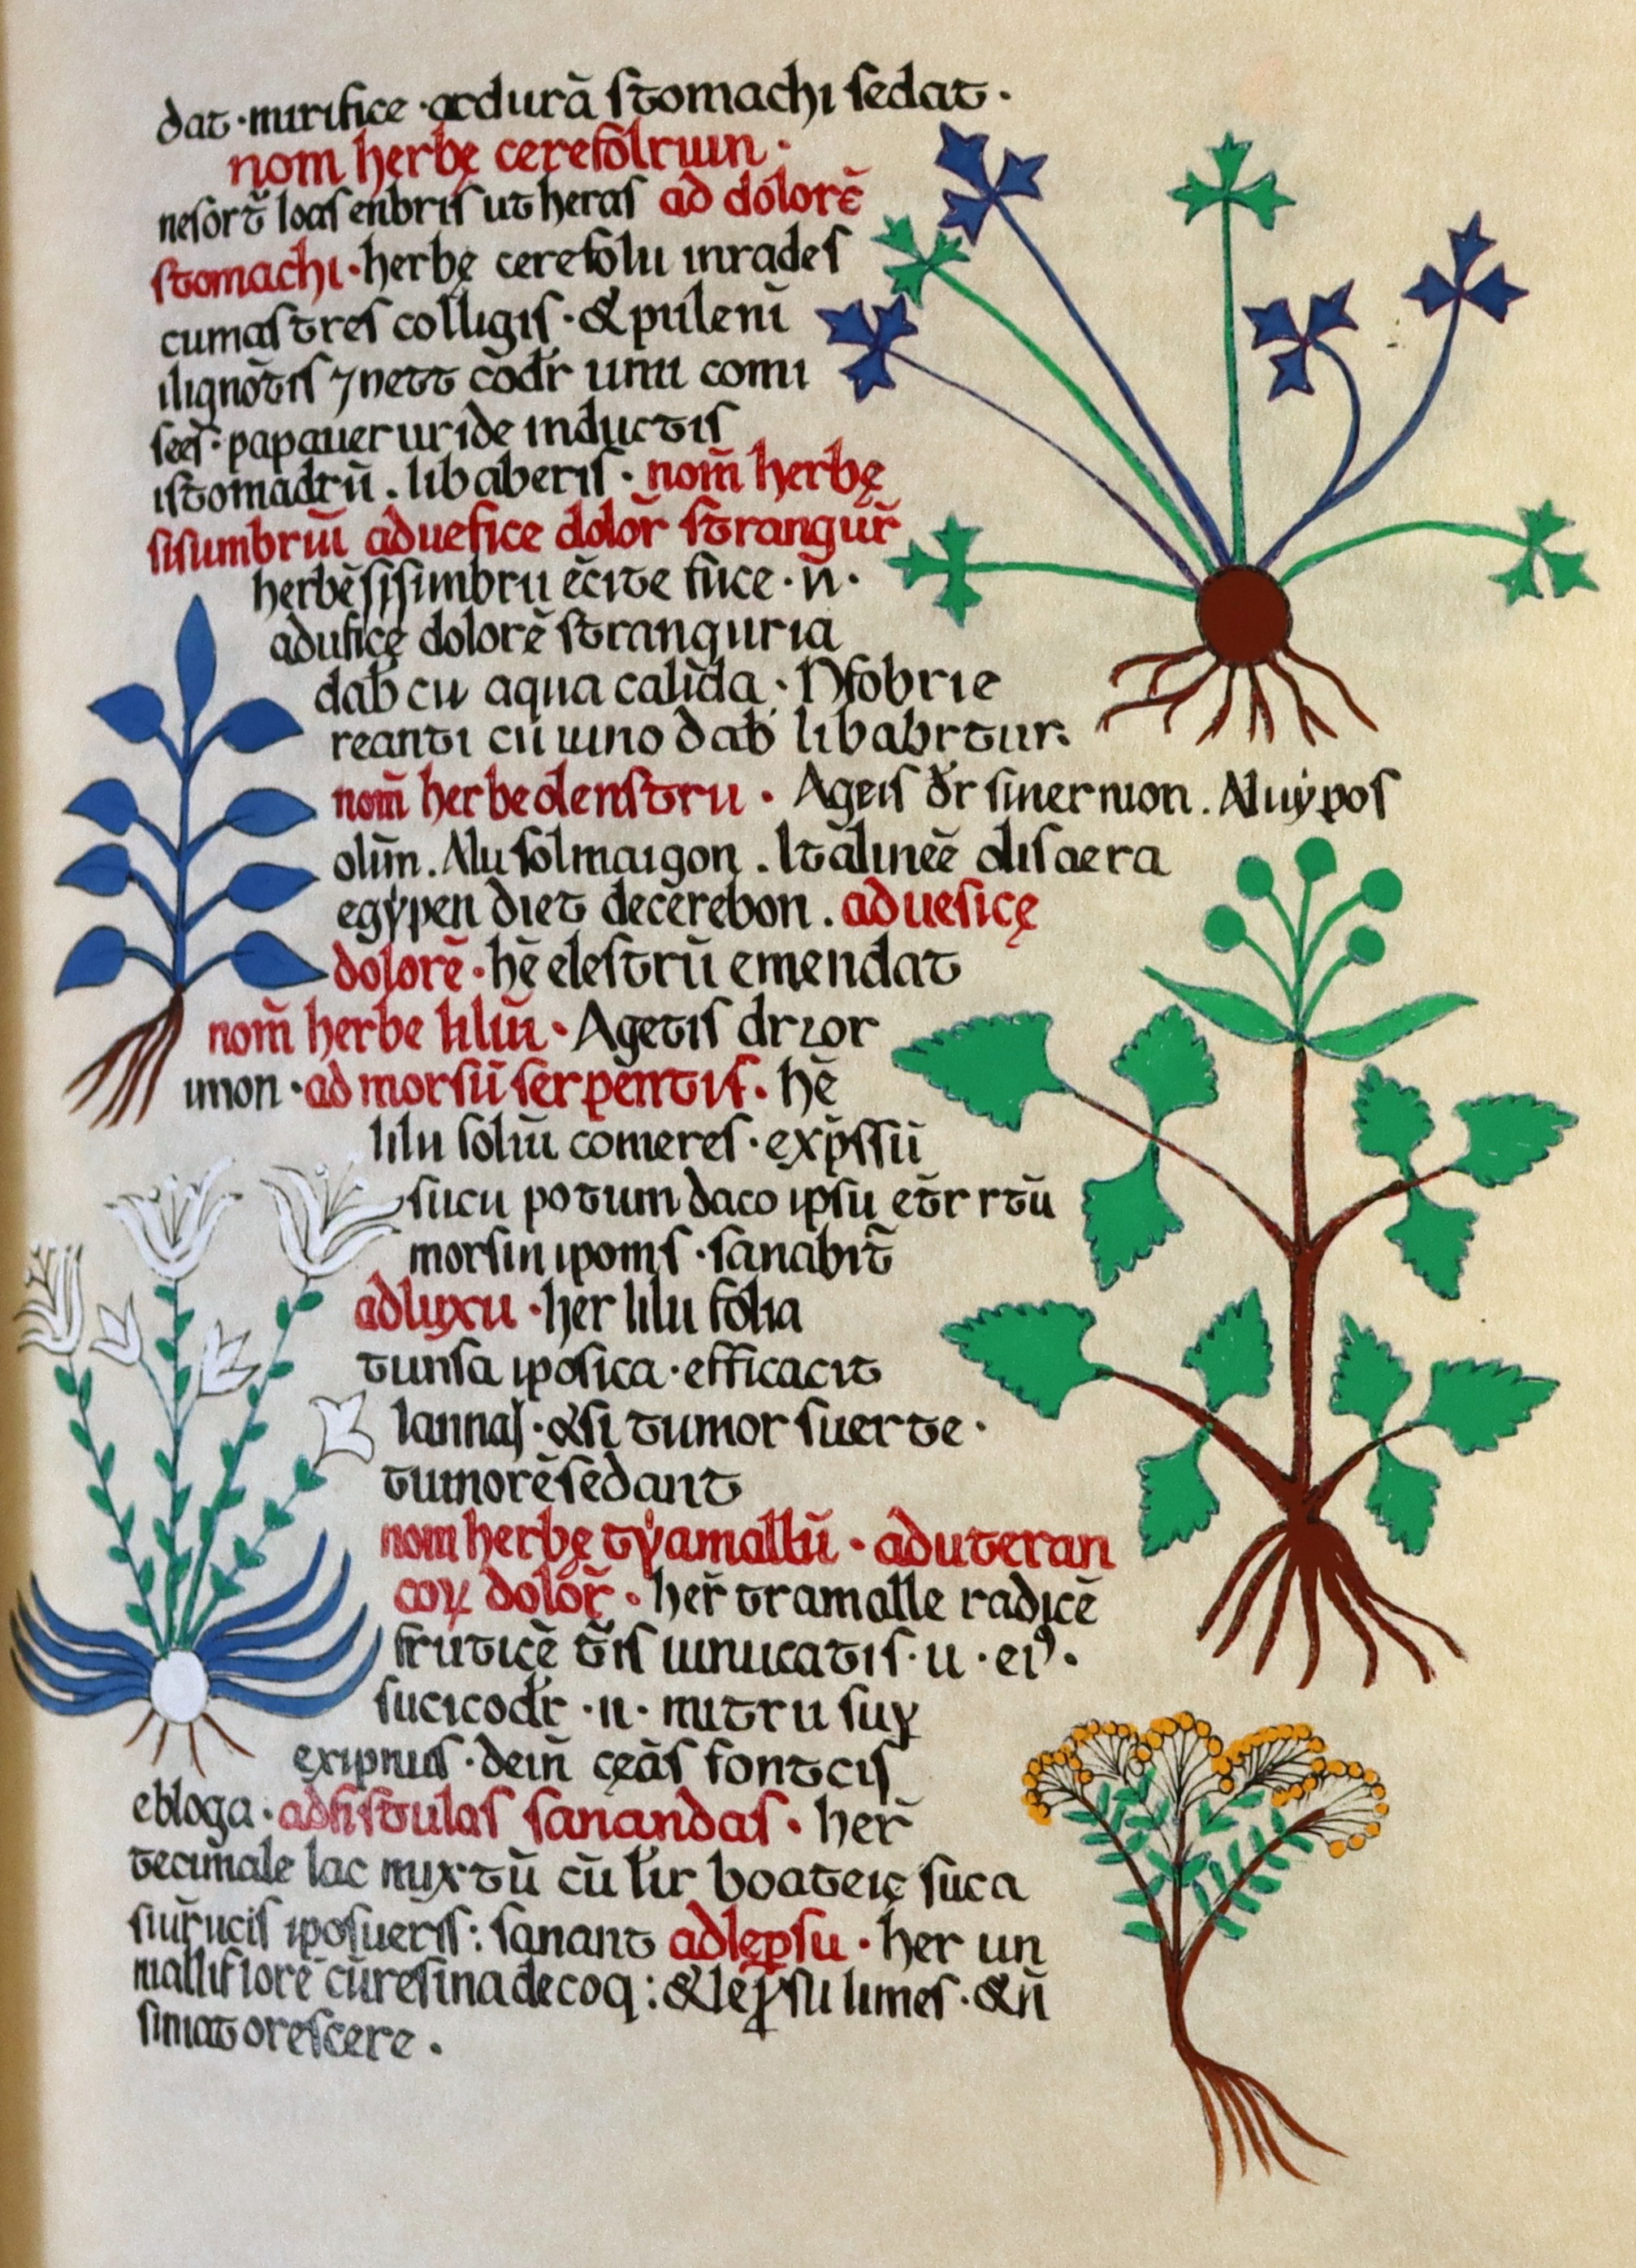 dat · mirifice · ardurā stomachi sedat ·
nom herbę cerefolium ·
nesort̄ loas enbris ut heras ad dolorē
stomachi · herbę cerefolii uirides
cumas tres colligis · & puleni
ilignōtis ⁊ nett cōdr unu comi
sees · papaueruiride inductis
istomachū . libaberis · nom̄ herbę
sisumbriū aduesice dolor̄ strangur̄
herbēsisimbrii ēcite suce · n̄ ·
adusicę dolorē stranguria
dab̄ cu aqua calida · Nsobrie
reanti cū uino dab libabrtur
nom̄ herbe olenstru · Ageis dr̄ sinernion . Alu ẏpos
olim̄ . Alu solmaigon . Itālineē olisaera
egẏpen diet decērebon . aduesicę
dolorē · hē elestrū emendat
nom̄ herbe liliū · Agetis dr lor
unon · ad morsū serpentis · hē
lilii soliū comeres · exp̄ssū
sucu potum daco ipsu ētr rtū
morsin ipoms · sanabit̄
adluxu · her lilii folia
tunsa iposica · efficacit
lannas · & si tumor suerte ·
tumorē sedant
nom herbę tẏamallū · aduteran
coꝝ dolor̄ · her̄ tramalle radicē
fruticē tīs uinucatis · u · ei⁹ ·
sucicodr · n · mitru suꝝ
exipnus · dein̄ cęās fontcis
ebloga · adfistulas sanandas · her̄
tecimale lac mixtū cū līr boateic suca
siūrucis iposueris : sanant adlep̄su · her un
malliflorē cūresinadecoq : & lep̄su limes · & n̄
simat orescere ·